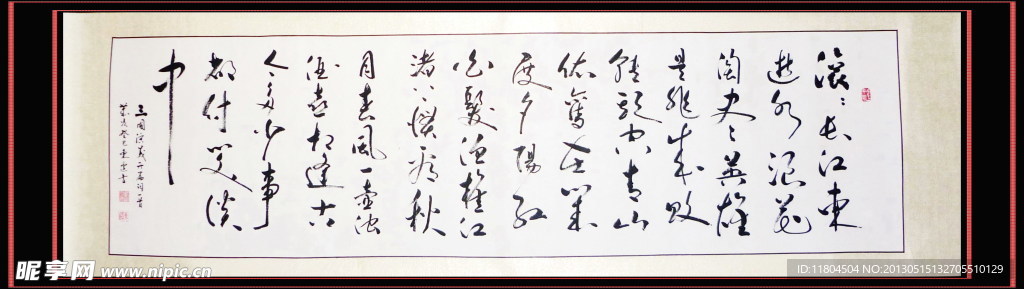 滚滚長江東
逝水浪花
淘盡英雄
是非成敗
轉頭空青山
依舊在幾
度夕陽紅
白髮漁樵江
渚上慣看秋
月春風一壺浊
酒喜相逢古
今多少事
都付笑談
中
三國演義开篇词一首
昵享网 www.nipic.cn
ID:11804504 NO:20130515132705510129